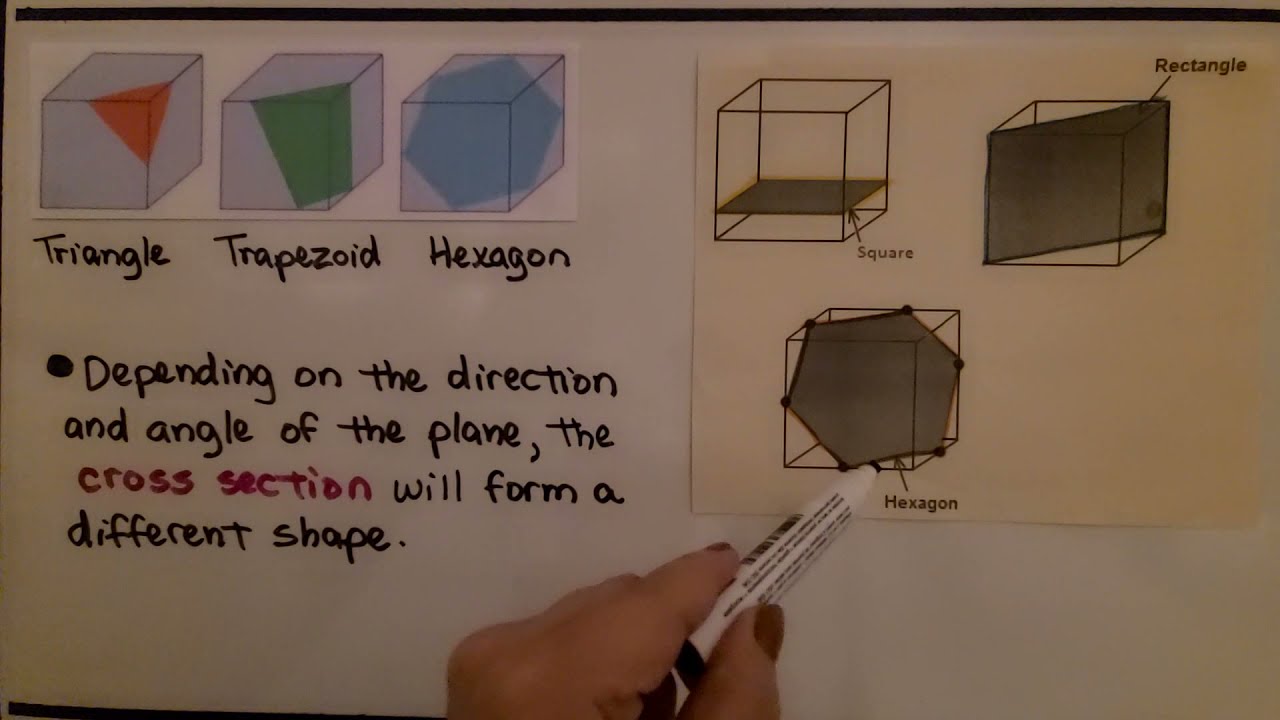 Triangle Trapezoid Hexagon
• Depending on the direction
and angle of the plane, the
cross section will form a
different shape.
Rectangle
Square
Hexagon